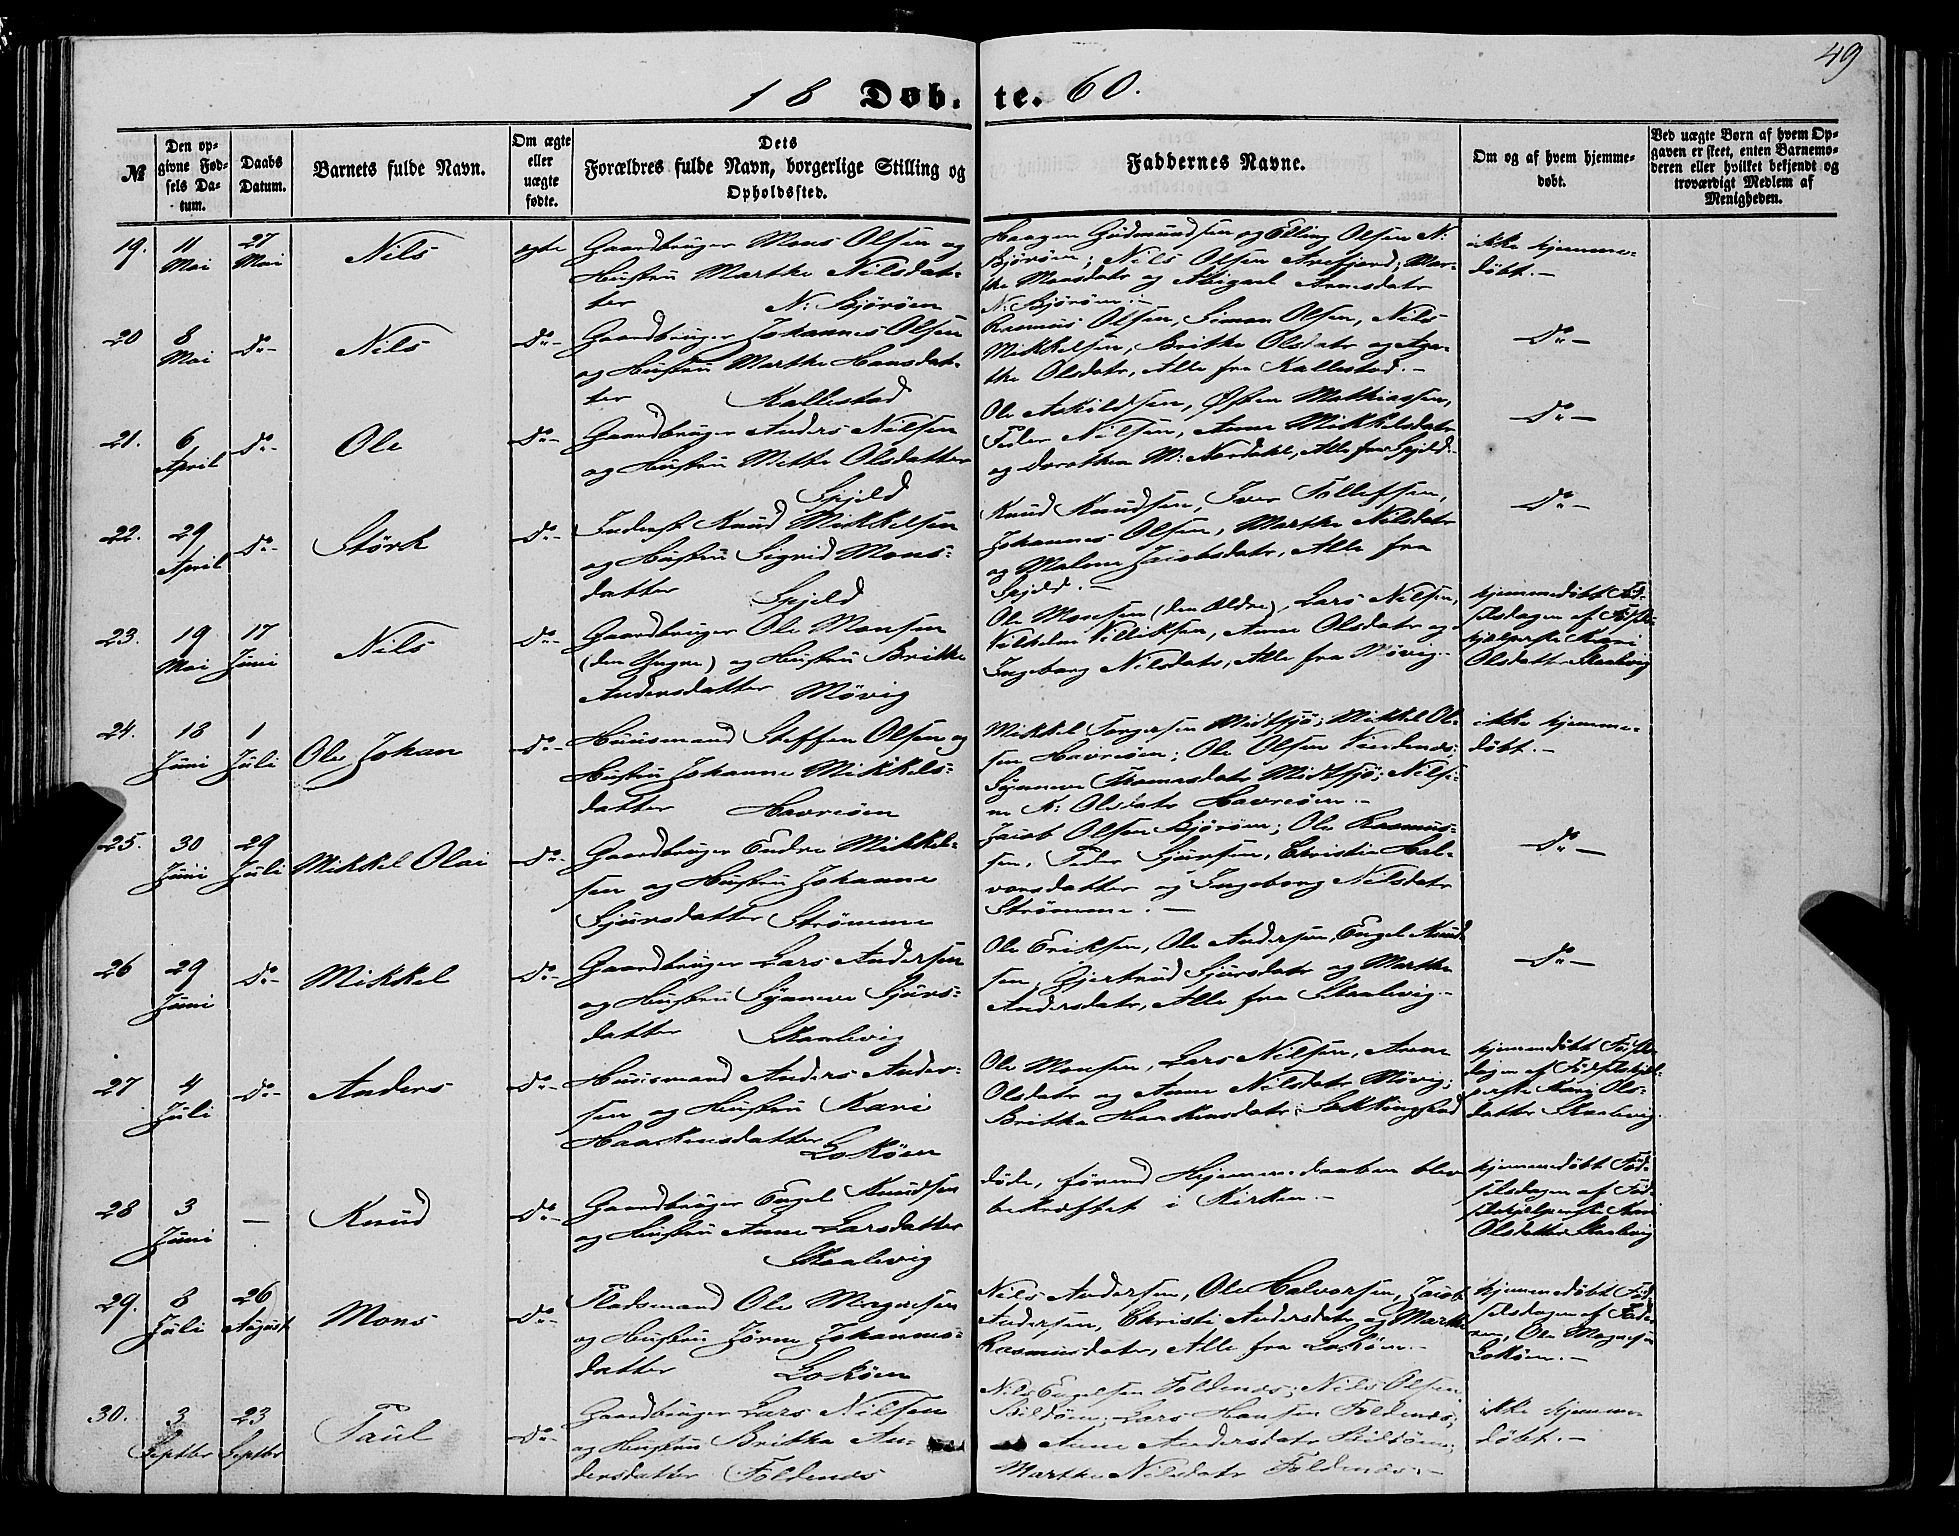 49
18 Døb. te. 60.
№
Den op-
givne Fød-
sels Da-
tum.
Daabs
Datum.
Barnets fulde Navn.
Om ægte
eller
uægte
fødte.
Dets
Forældres fulde Navn, borgerlige Stilling og
Opholdssted.
Faddernes Navne.
Om og af hvem hjemme-
døbt.
Ved uægte Børn af hvem Op-
gaven er skeet, enten Barnemo-
deren eller hvilket bekjendt og
troværdigt Medlem af
Menigheden.
19.
11
Mai
27
Mai
Nils
ægte
Gaardbruger Mons Olsen og
Hustru Marthe Nilsdat-
ter N: Bjørøen
Haagen Gudmundsen og Elling Olsen N:
Bjørøen; Nils Olsen Arefjord; Mar-
the Monsdatr og Abigael Arnesdatr
N: Bjørøen.-
ikke hjemme-
døbt.-
20
8
Mai
Do-
Nils
Do-
Gaardbruger Johannes Olsen
og Hustru Marthe Hansdat-
ter Kallestad
Rasmus Olsen, Simon Olsen, Nils
Mikkelsen, Brithe Olsdatr og Aga-
the Olsdatr, Alle fra Kallestad.-
Do-
21.
6
April
Do-
Ole
Do-
Gaardbruger Anders Nilsen
og Hustru Mette Olsdatter
Spjeld
Ole Askildsen, Østen Mathiassen,
Peder Nilsen, Anne Mikkelsdatr
og Dorothea M: Nordahl, Alle fra Spjeld.
Do-
22.
29
April
Do-
Størk
Do-
Inderst Knud Mikkelsen
og Hustru Sigrid Mons-
datter Spjeld
Knud Knudsen, Iver Tollefsen,
Johannes Olsen, Marthe Nilsdatr
og Malene Jacobsdatr, Alle fra
Spjeld.-
Do-
23.
19
Mai
17
Juni
Nils
Do-
Gaardbruger Ole Monsen
(den Yngre) og Hustru Brithe
Andersdatter Møvig
Ole Monsen (den Ældre), Lars Nilsen,
Vilhelm Villiksen, Anne Olsdatr og
Ingeborg Nilsdatr, Alle fra Møvig.-
hjemmedøbt Fød-
selsdagen af
hjælperske Kari
Olsdatter Skaalevig
24.
18
Juni
1
Juli
Ole Johan
Do-
Huusmand Steffen Olsen og
Hustru Johanne Mikkels-
datter Havreøen
Mikkel Torgersen Midtsjø; Mikkel Ol-
sen Havreøen; Ole Olsen Vindenæs;
Synneve Thomasdatr Midtsjø; Nilsi-
ne K: Olsdatr Havreøen.-
ikke hjemme-
døbt.-
25.
30
Juni
29
Juli
Mikkel Olai
Do-
Gaardbruger Endre Mikkel-
sen og Hustru Johanne
Sjursdatter Strømme
Jacob Olsen Bjørøen; Ole Rasmus-
sen, Peder Sjursen, Christie Hal-
vorsdatter og Ingeborg Nilsdatr
Strømme.-
Do-
26
29
Juni
Do-
Mikkel
Do-
Gaardbruger Lars Andersen
og Hustru Synneve Sjurs-
datter Skaalevig
Ole Eriksen, Ole Andersen, Engel Knud-
sen, Gjertrud Sjursdatr og Marthe
Andersdatr, Alle fra Skaalevig.-
Do-
27
4
Juli
Do-
Anders
Do-
Huusmand Anders Ander-
sen og Hustru Kari
Haackensdatter Lokøen
Ole Monsen, Lars Nilsen, Anne
Olsdatr og Anne Nilsdatr Møvig;
Britha Haakensdatr Sekkingstad
hjemmedøbt
dagen af Fødselshjæl-
perske Kari Ols-
datter Skaalevig.
28
3
Juni
-
Knud
Do-
Gaardbruger Engel Knudsen
og Hustru Anne Larsdatter
Skaalevig
døde, førend Hjemmedaaben blev
bekræftet i Kirken.-
hjemmedøbt Fød-
selsdagen af Fød-
selshjælperske Kari
Olsdatter Skaalevig
29.
8
Juli
26
August
Mons
Do-
Pladsmand Ole Magnesen
og Hustru Jørne Johannes-
datter Lokøen
Nils Andersen, Ole Halvorsen, Jacob
Andersen, Christi Andersdatr og Marthe
Rasmusdatr, Alle fra Lokøen.-
hjemmedøbt Fød-
selsdagen af Fade-
ren, Ole Magnesen
Lokøen.-
30.
3
Septbr
23
Septbr
Paul
Do-
Gaardbruger Lars Nilsen
og Hustru Britha An-
dersdatter Foldenæs
Nils Engelsen Foldenæs; Nils Olsen
Bildøen; Lars Hansen Foldenæs;
Anne Andersdatr Bildøen;
Marthe Nilsdatr Foldenæs.-
ikke hjemme-
døbt.-